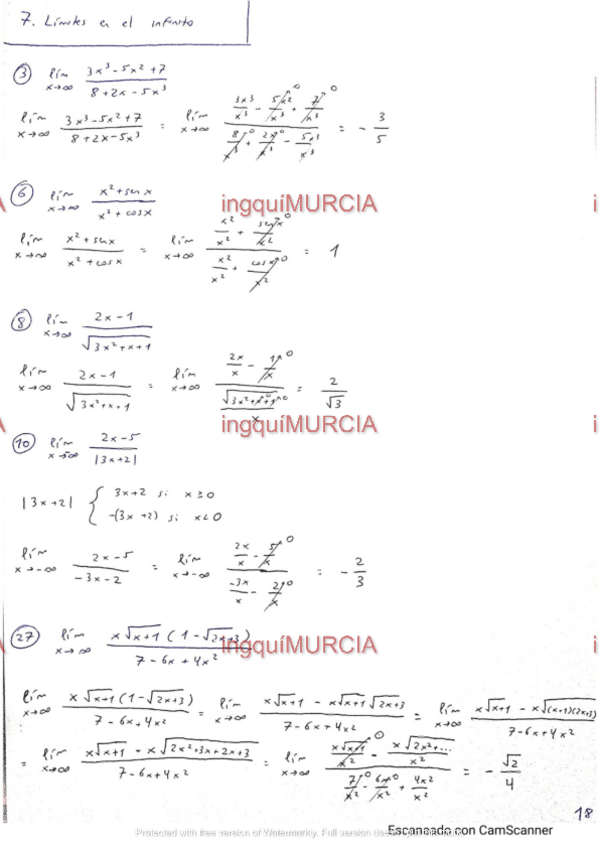 7. Límites en el infinito
③ lím x→∞ (3x³ - 5x² + 7)/(8 + 2x - 5x³)
lím x→∞ (3x³ - 5x² + 7)/(8 + 2x - 5x³) = lím x→∞ (3x³/x³ - 5x²/x³ + 7/x³)/(8/x³ + 2x/x³ - 5x³/x³) = - 3/5
⑥ lím x→∞ (x² + sen x)/(x² + cos x)
ingquíMURCIA
lím x→∞ (x² + sen x)/(x² + cos x) = lím x→∞ (x²/x² + sen x/x²)/(x²/x² + cos x/x²) = 1
⑧ lím x→∞ (2x - 1)/√(3x² + x + 1)
lím x→∞ (2x - 1)/√(3x² + x + 1) = lím x→∞ (2x/x - 1/x)/(√(3x² + x + 1)/x) = 2/√3
ingquíMURCIA
⑩ lím x→-∞ (2x - 5)/|3x + 2|
|3x + 2| { 3x + 2 si x ≥ 0
-(3x + 2) si x < 0
lím x→-∞ (2x - 5)/(-3x - 2) = lím x→-∞ (2x/x - 5/x)/(-3x/x - 2/x) = - 2/3
㉗ lím x→∞ x√(x+1) (1 - √(2x+3))/(7 - 6x + 4x²)
ingquíMURCIA
lím x→∞ x√(x+1) (1 - √(2x+3))/(7 - 6x + 4x²) = lím x→∞ (x√(x+1) - x√(x+1) √(2x+3))/(7 - 6x + 4x²) = lím x→∞ (x√(x+1) - x√((x+1)(2x+3)))/(7 - 6x + 4x²)
= lím x→∞ (x√(x+1) - x√(2x² + 3x + 2x + 3))/(7 - 6x + 4x²) = lím x→∞ (x√(x+1)/x² - x√(2x² + ...)/x²)/(7/x² - 6x/x² + 4x²/x²) = - √2/4
18
Protected with free version of Watermarkly. Full version doesn't
Escaneado con CamScanner